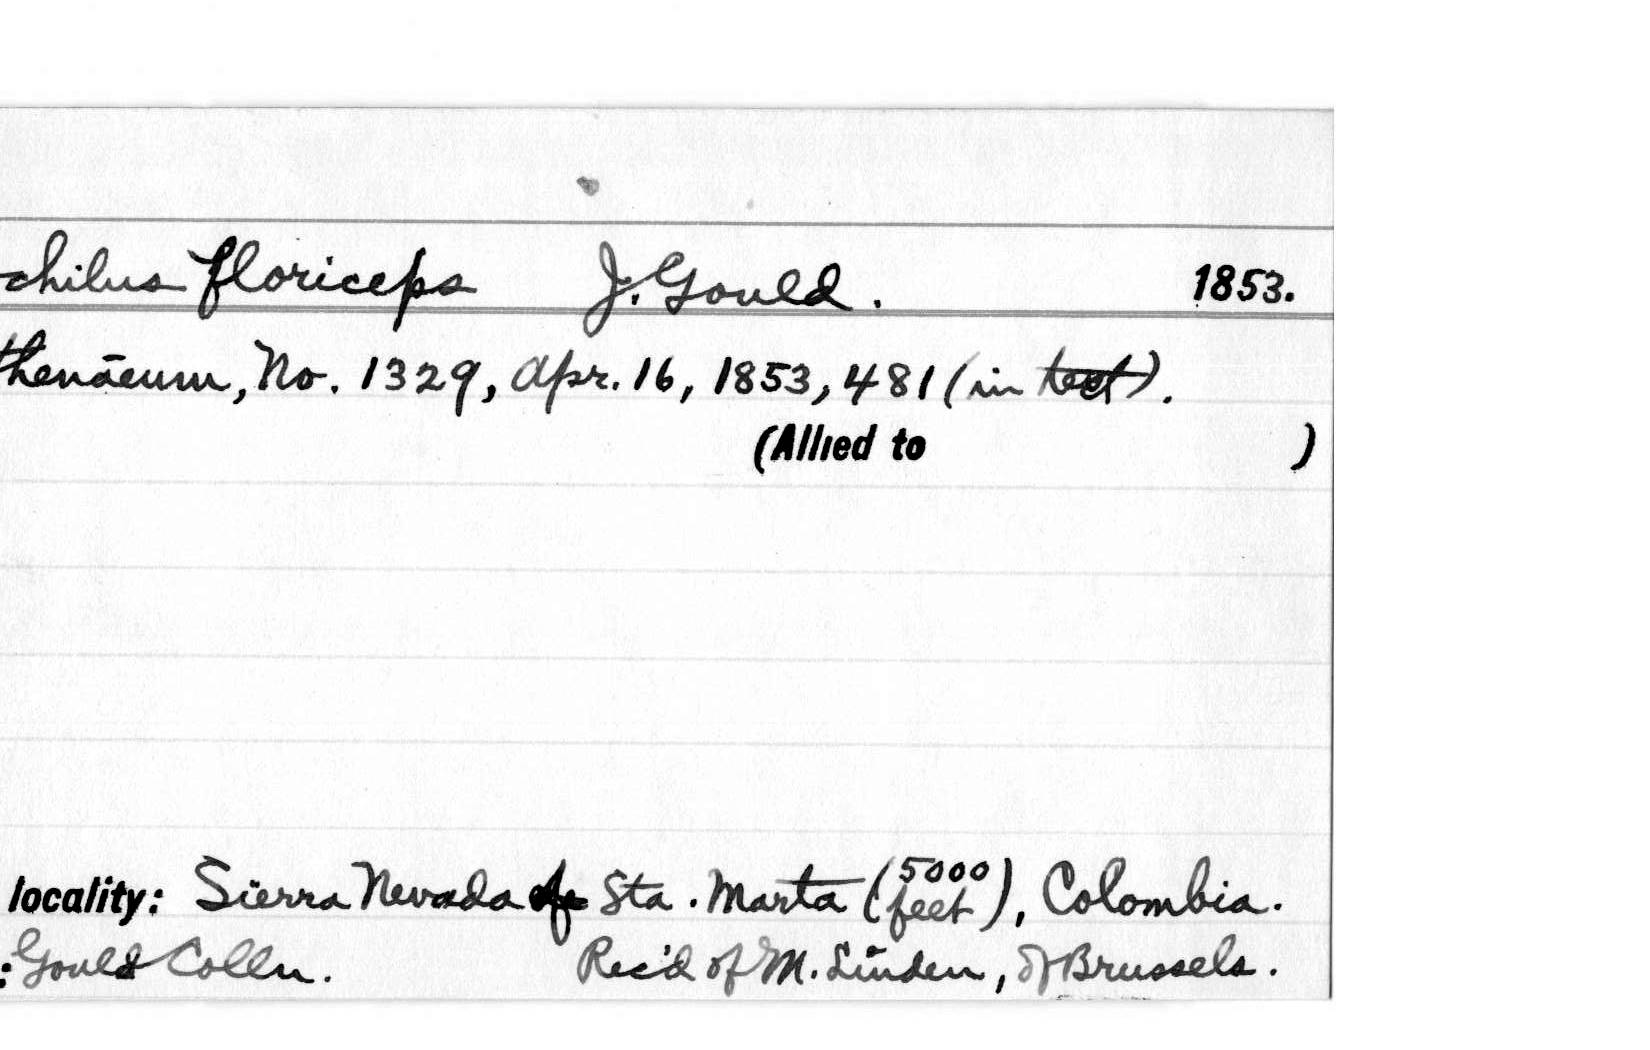 chilus floriceps J. Gould. 1853.
thenaeum, No. 1329, Apr. 16, 1853, 481 (in text).
(Allied to )
locality: Sierra Nevada of Sta. Marta (5000 feet), Colombia.
: Gould Colln. Rec'd of M. Linden, of Brussels.